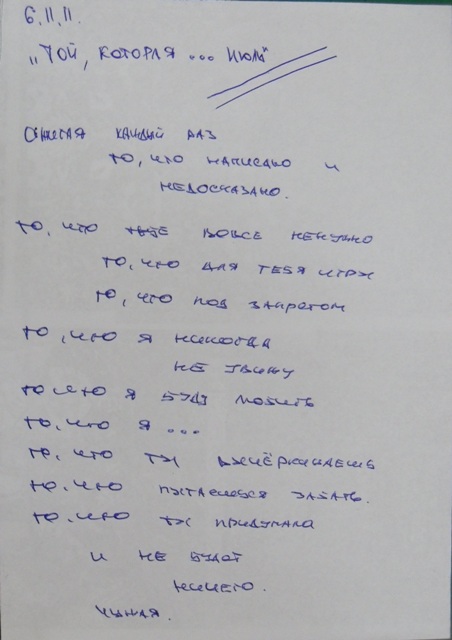 6.11.11.
"ТОЙ, КОТОРАЯ ... ИЮЛЬ"
СЖИГАЯ КАЖДЫЙ РАЗ
ТО, ЧТО НАПИСАНО И
НЕДОСКАЗАНО.
ТО, ЧТО ВОВСЕ НЕНУЖНО
ТО, ЧТО ДЛЯ ТЕБЯ ИГРЫ
ТО, ЧТО ПОД ЗАПРЕТОМ
ТО, ЧТО Я НИКОГДА
НЕ
ТО ЧТО Я БУДУ ЛЮБИТЬ
ТО, ЧТО Я ...
ТО, ЧТО ТЫ ВЫЧЁРКИВАЕШЬ
ТО, ЧТО ПЫТАЕШЬСЯ ЗАБЫТЬ.
ТО, ЧТО ТЫ ПРИДУМАЛА
И НЕ БУДЕТ
НИЧЕГО.